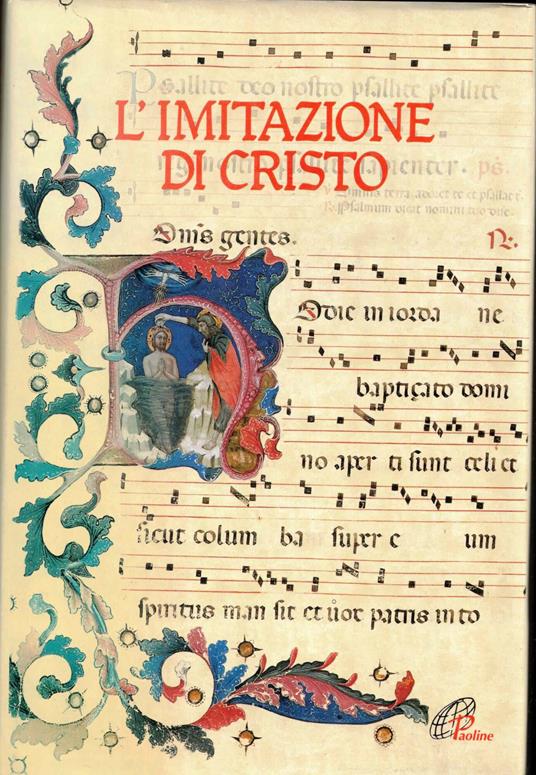 Psallite deo nostro psallite psallite
L'IMITAZIONE
DI CRISTO
sapienter. ps.
Omnis terra adoret te et psallat t.
Psalmum dicat nomini tuo dñe.
Omīs gentes. R.
Odie in iorda ne
baptiçato domi
no aper ti sunt celi et
sicut colum ba super e um
spiritus man sit et uox patris into
Paoline